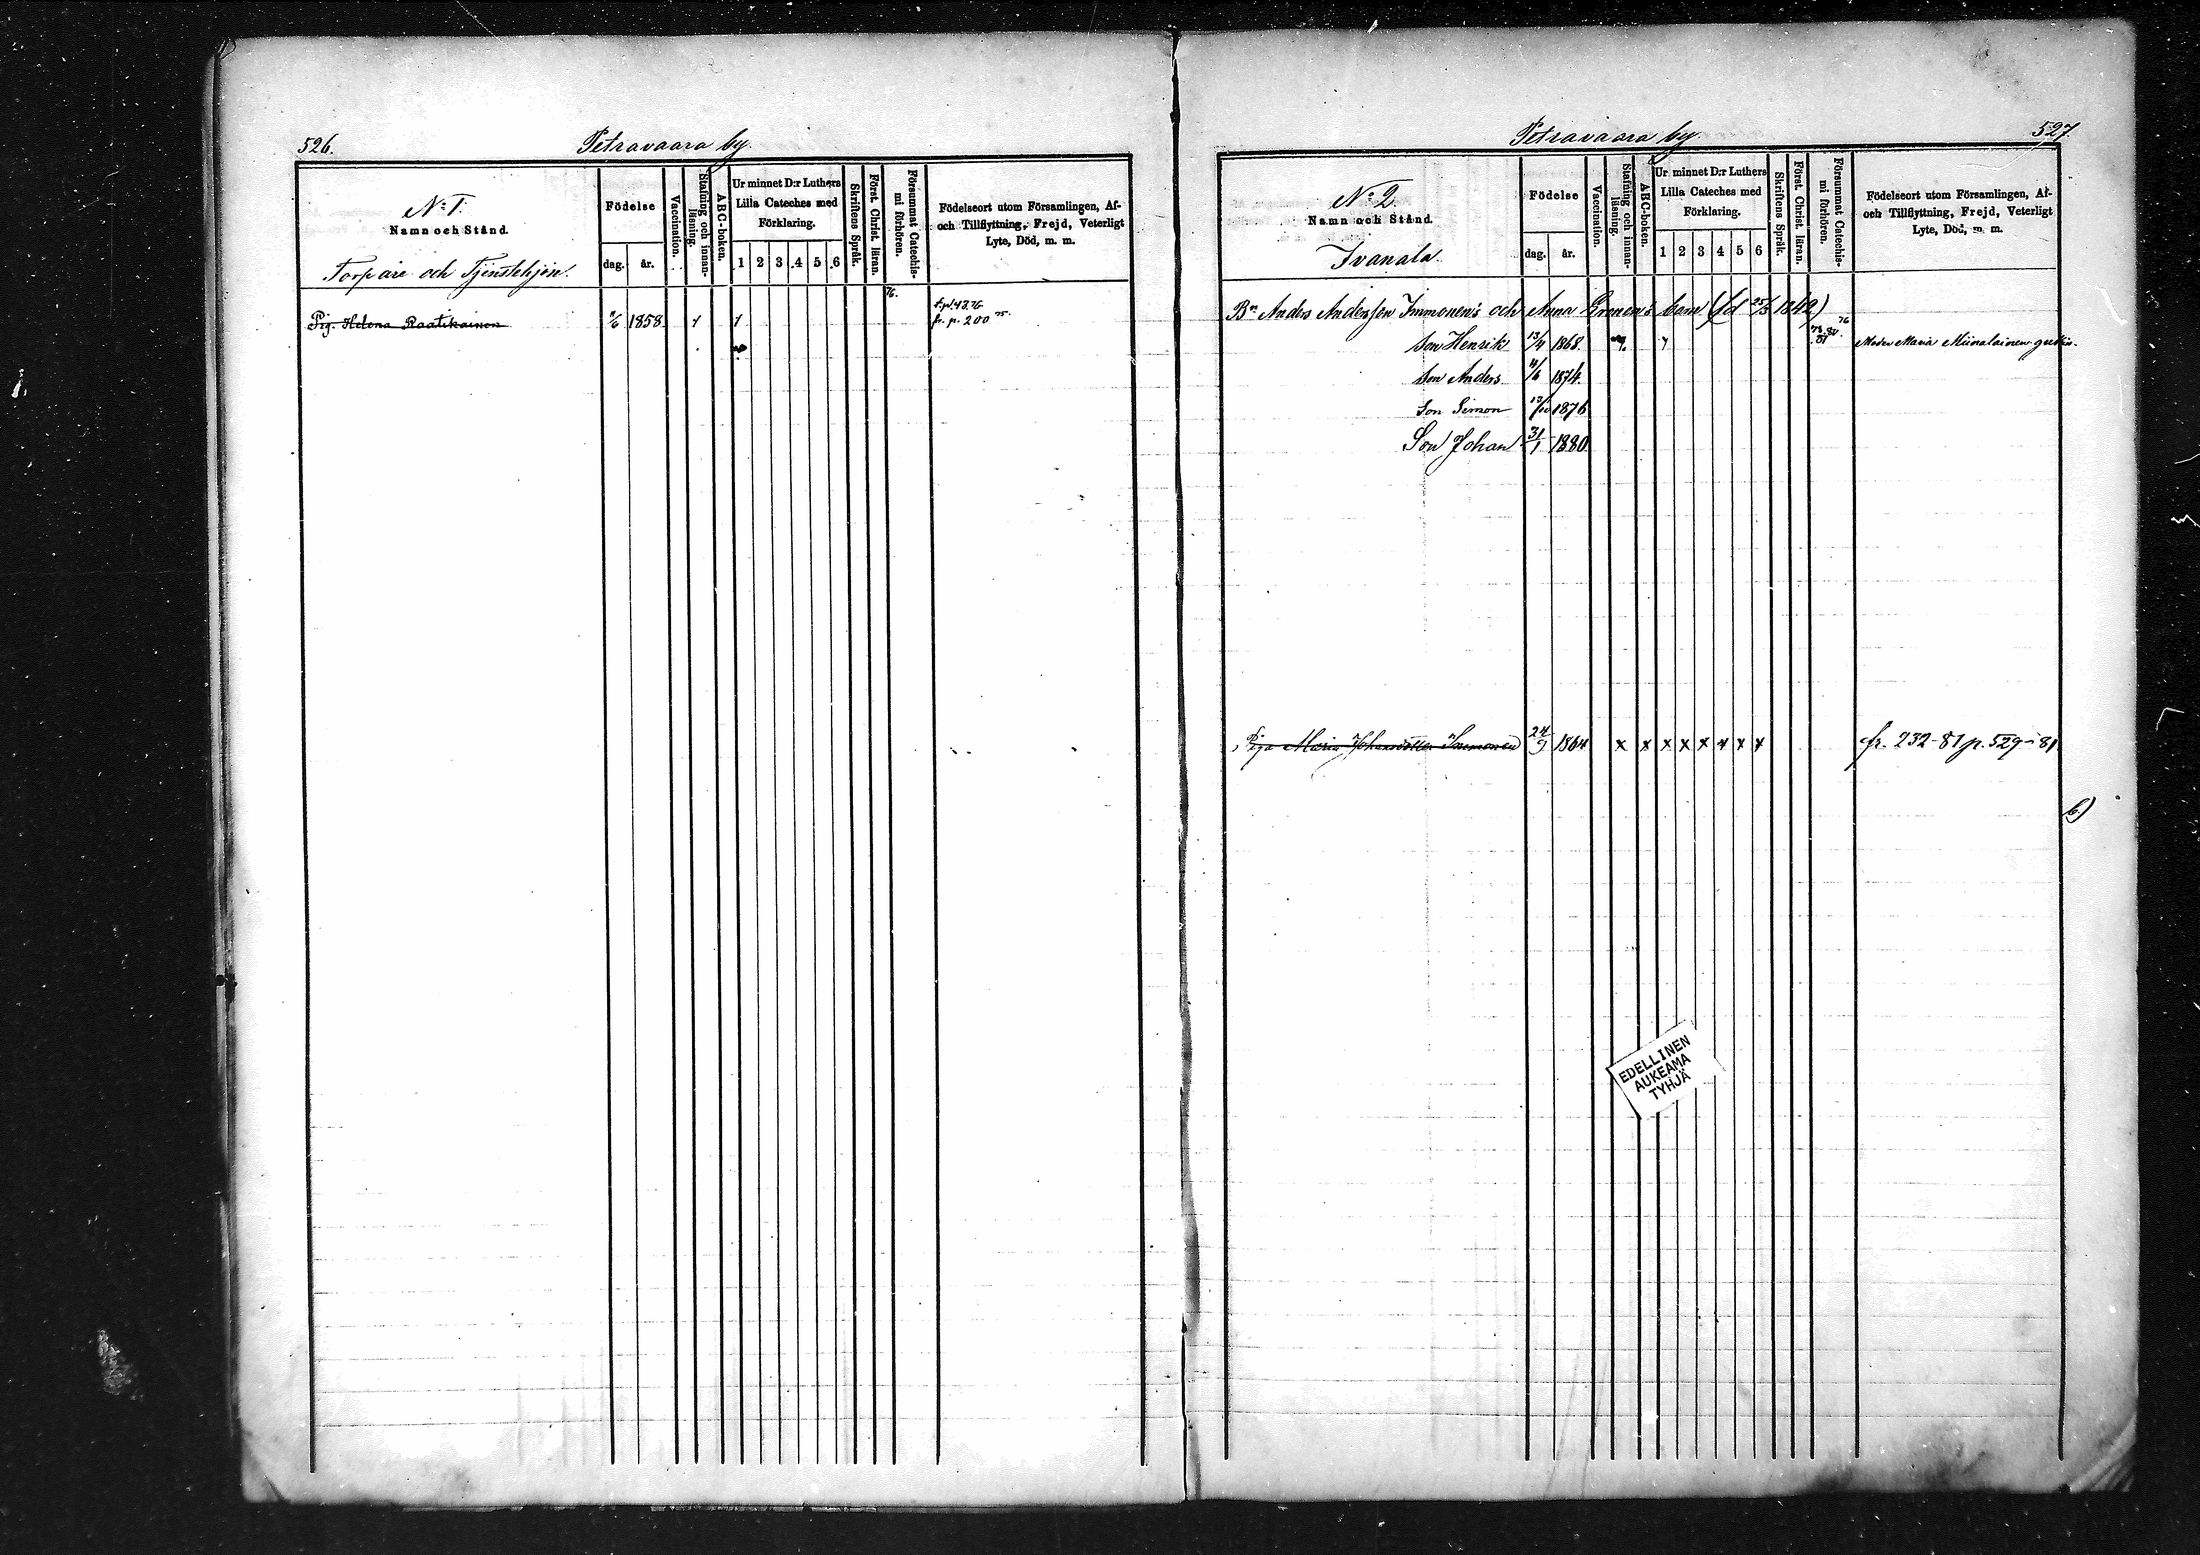 526.
Petravaara by.
Nº 1.
Namn och Stånd.
Torpare och Tjenstehjon.
Födelse
dag.
år.
Vaccination.
Stafning och innan-
läsning.
ABC-boken.
Ur minnet D:r Luthers
Lilla Cateches med
Förklaring.
1 2 3 4 5 6
Skriftens Språk.
Först. Christ. läran.
Försummat Catechis-
mi förhören.
Födelseort utom Församlingen, Af-
och Tillflyttning, Frejd, Veterligt
Lyte, Död, m. m.
76.
Pig. Helena Raatikainen 1858
fr. p. 200 75
527.
Petravaara by.
Nº 2.
Namn och Stånd.
Ivanala.
Födelse
dag.
år.
Vaccination.
Stafning och innan-
läsning.
ABC-boken.
Ur minnet D:r Luthers
Lilla Cateches med
Förklaring.
1 2 3 4 5 6
Skriftens Språk.
Först. Christ. läran.
Försummat Catechis-
mi förhören.
Födelseort utom Församlingen, Af-
och Tillflyttning, Frejd, Veterligt
Lyte, Död, m. m.
Bn Anders Andersson Immonen's och Anna barn (fd 25/3 1842)
76
Son Henrik 13/4 1868 78. 80. 81 Moder Maria
Son Anders 4/6 1874
Son Simon 13/10 1876
Son Johan 31/1 1880
Piga Maria Johansdotter Immonen 24/9 1864 x x x x x x x x fr. 232-81 p. 529-81
6)
EDELLINEN
AUKEAMA
TYHJÄ